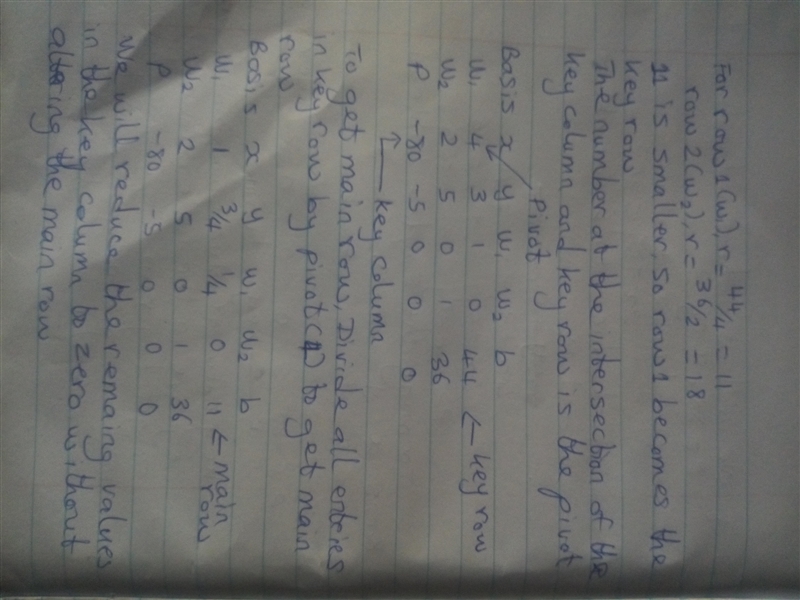 For row 1 (w₁), r = 44/4 = 11
row 2 (w₂), r = 36/2 = 18
11 is smaller, so row 1 becomes the
key row
The number at the intersection of the
key column and key row is the pivot
pivot
Basis x y w₁ w₂ b
w₁ 4 3 1 0 44 ← key row
w₂ 2 5 0 1 36
P -80 -5 0 0 0
↑ key column
To get main row, Divide all entries
in key row by pivot (4) to get main
row
Basis x y w₁ w₂ b
w₁ 1 3/4 1/4 0 11 ← main row
w₂ 2 5 0 1 36
P -80 -5 0 0 0
We will reduce the remaing values
in the key column to zero without
altering the main row